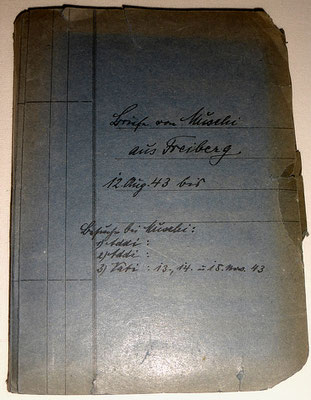 Briefe von Muschi
aus Freiberg
12. Aug. 43 bis
Besuche bei Muschi:
1) Addi :
2) Addi :
3) Vati : 13., 14. u 15. Nov. 43